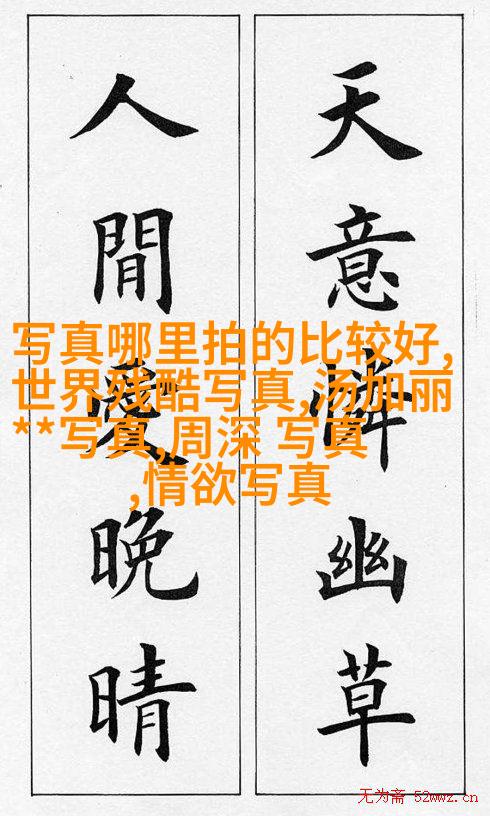 天意憐幽草
人間愛晚晴
写真哪里拍的比较好,
世界残酷写真,汤加丽
**写真,周深 写真
,情欲写真
无为斋 52wwz.cn